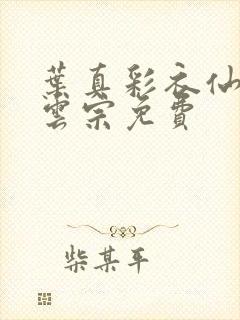 葉真彩衣仙
雲宗免費
柴某平